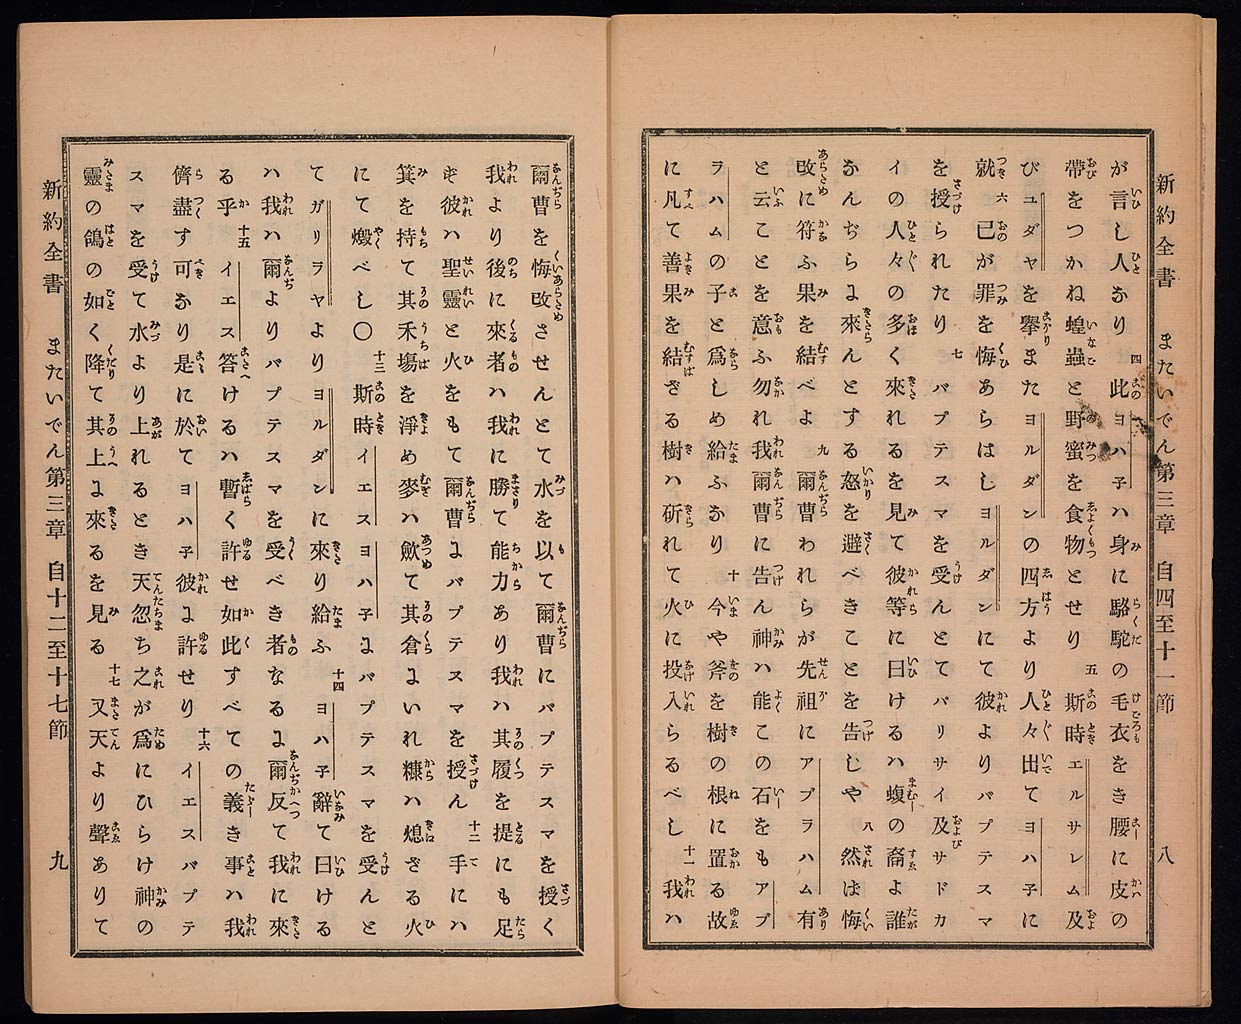 新約全書 またいでん第三章 自四至十一節 八
が言し人なり 四 此ヨハ子ハ身に駱駝の毛衣をき腰に皮の
帶をつかね蝗蟲と野蜜を食物とせり 五 斯時エルサレム及
びユダヤを擧またヨルダンの四方より人々出てヨハ子に
就 六 己が罪を悔あらはしヨルダンにて彼よりバプテスマ
を授られたり 七 バプテスマを受んとてパリサイ及サドカ
イの人々の多く來れるを見て彼等に曰けるハ蝮の裔よ誰
なんぢらよ來んとする怒を避べきことを告しや 八 然は悔
改に符ふ果を結べよ 九 爾曹われらが先祖にアブラハム有
と云ことを意ふ勿れ我爾曹に告ん神ハ能この石をもアブ
ラハムの子と爲しめ給ふなり 十 今や斧を樹の根に置る故
に凡て善果を結ざる樹ハ斫れて火に投入らるべし 十一 我ハ
爾曹を悔改させんとて水を以て爾曹にバプテスマを授く
我より後に來者ハ我に勝て能力あり我ハ其履を提にも足
ず彼ハ聖靈と火をもて爾曹よバプテスマを授ん 十二 手にハ
箕を持て其禾塲を淨め麥ハ歛て其倉よいれ糠ハ熄ざる火
にて燬べし〇 十三 斯時イエスヨハ子よバプテスマを受んと
てガリラヤよりヨルダンに來り給ふ 十四 ヨハ子辭て曰ける
ハ我ハ爾よりバプテスマを受べき者なるよ爾反て我に來
る乎 十五 イエス答けるハ暫く許せ如此すべての義き事ハ我
儕盡す可なり是に於てヨハ子彼よ許せり 十六 イエスバプテ
スマを受て水より上れるとき天忽ち之が爲にひらけ神の
靈の鴿の如く降て其上よ來るを見る 十七 又天より聲ありて
新約全書 またいでん第三章 自十二至十七節 九